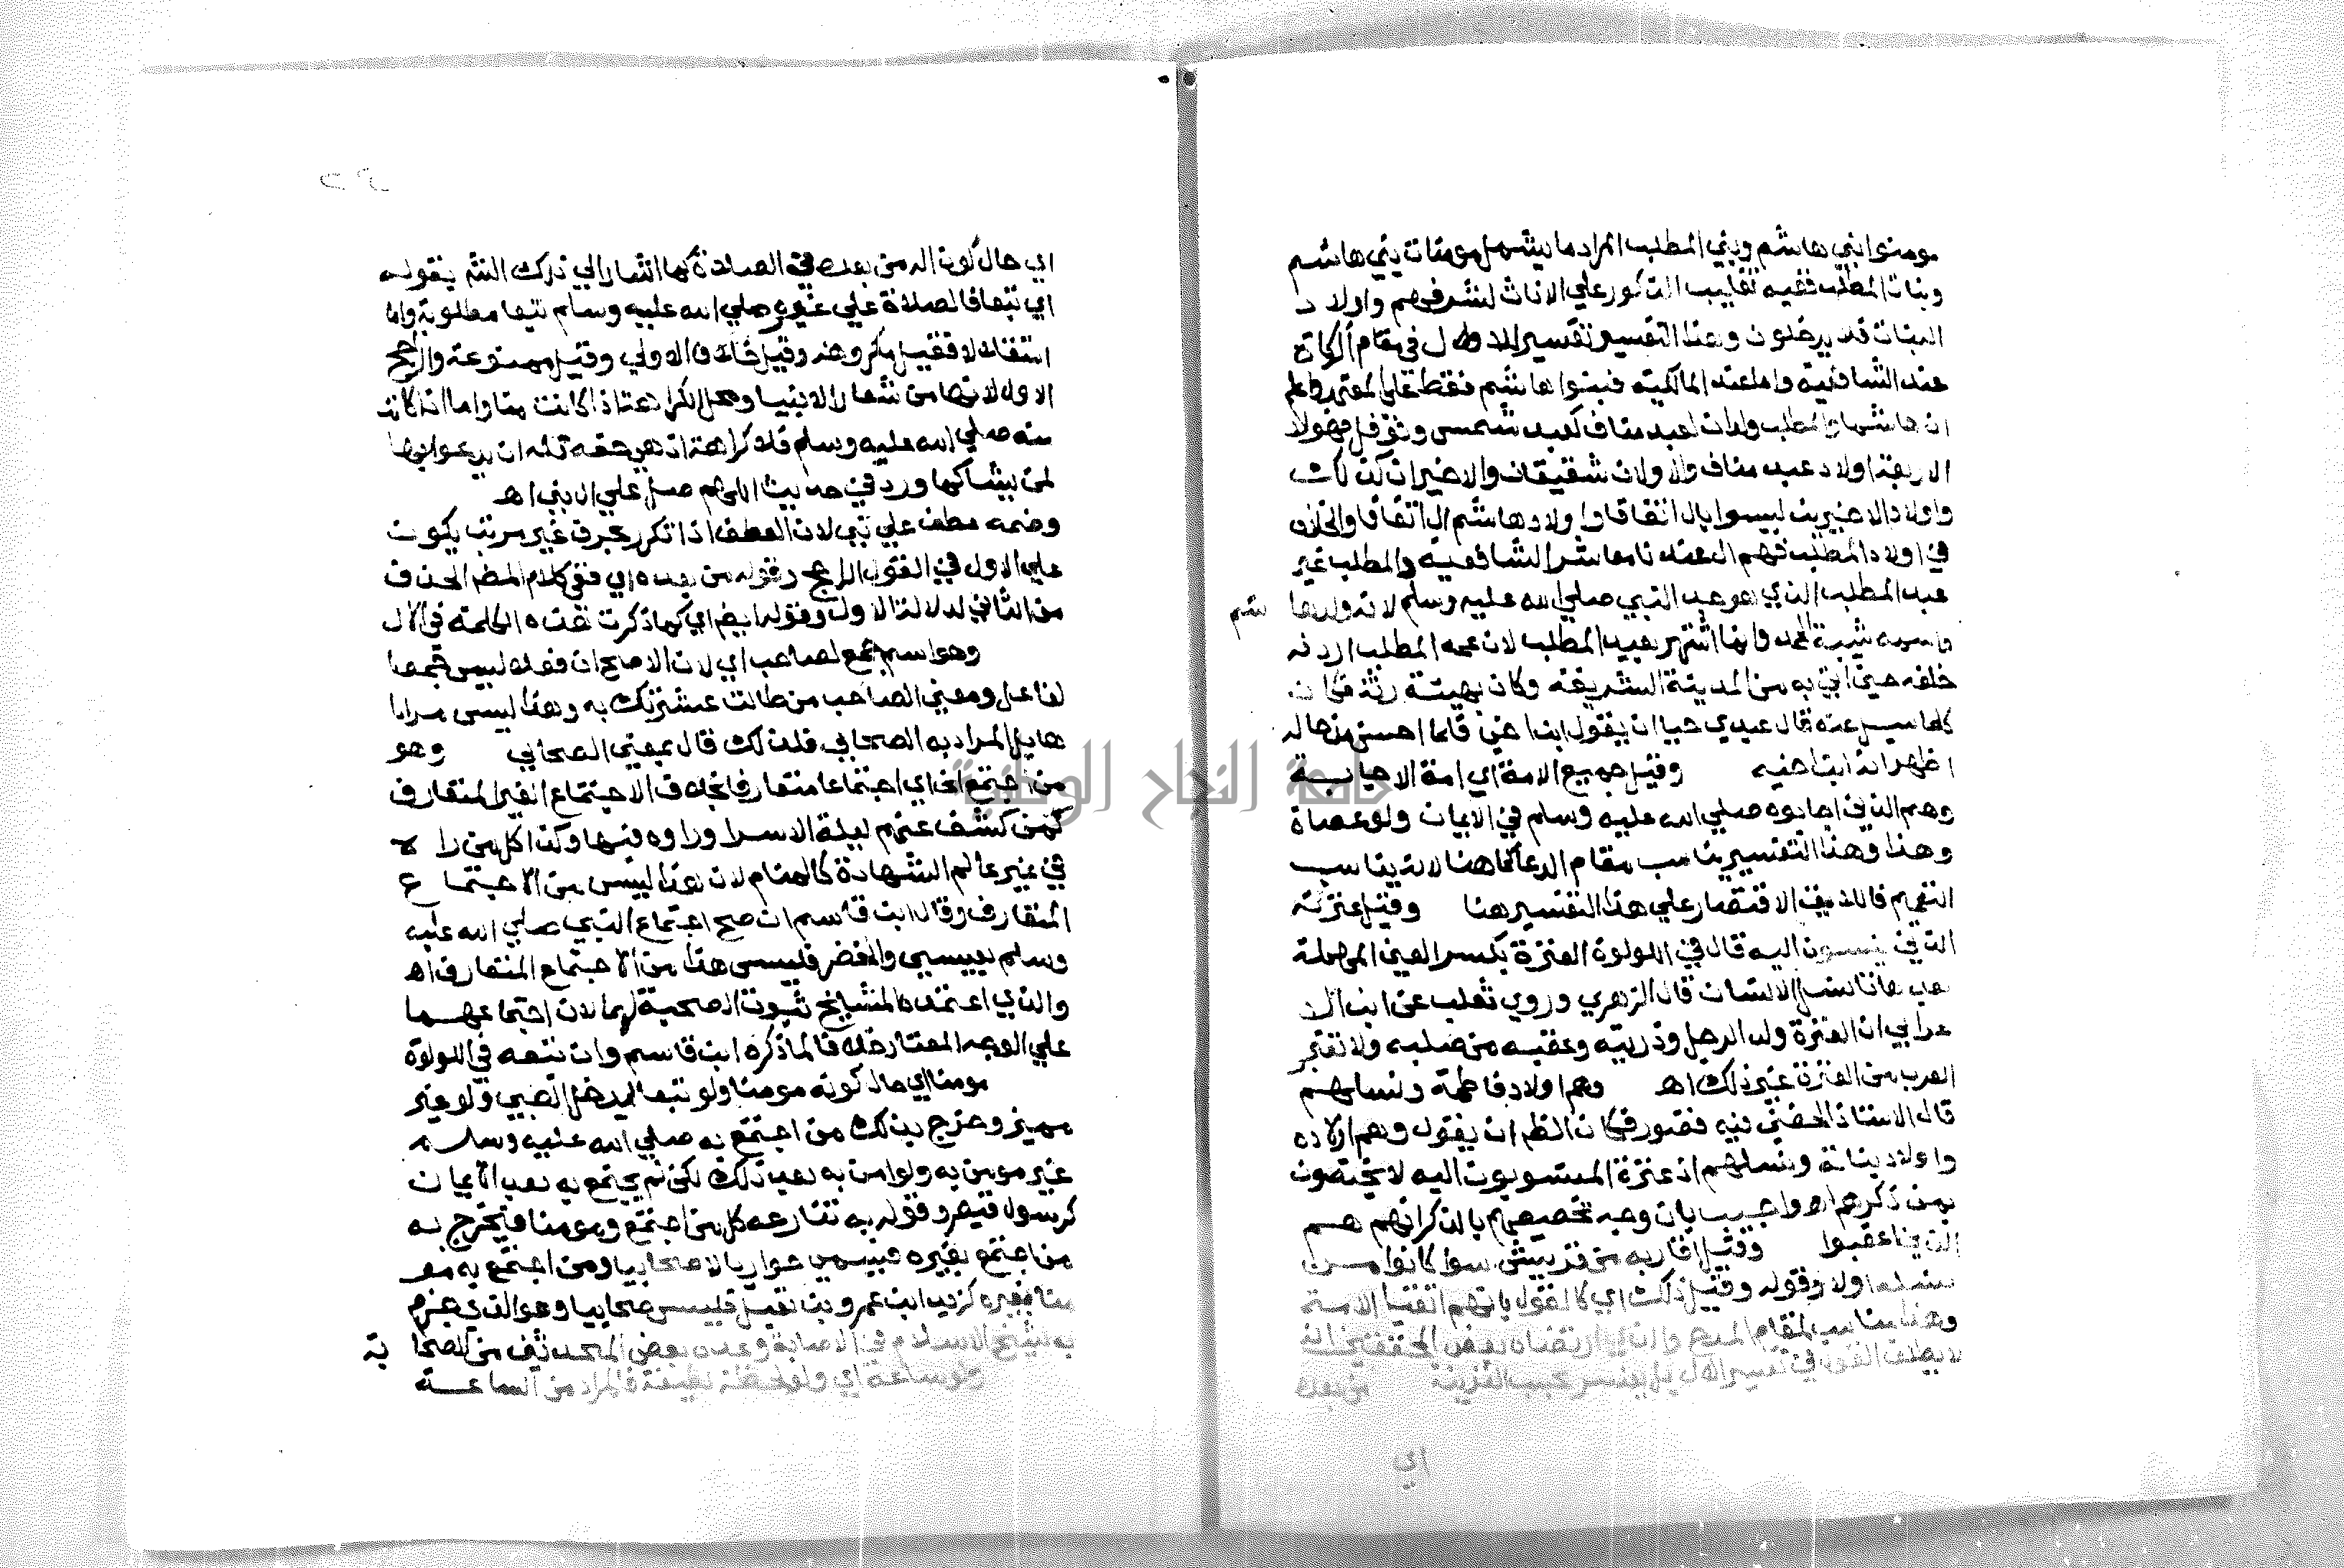 مومنوا بني هاشم وبني المطلب المراد ما يشمل مومنات بني هاشم
وبنات المطلب ففيه تغليب الذكور علي الاناث لشرفهم واولاد
البنات فلا يدخلون وهذا التفسير تفسير للال في مقام الزكاة
عند الشافعية واما عند المالكية فبنوا هاشم فقط علي المعتمد واعلم
ان هاشما والمطلب ولدان لعبد مناف كعبد شمس ونوفل فهولا
الاربعة اولاد عبد مناف والاولان شقيقان والاخيران كذلك
واولاد الاخيرين ليسوا بال اتفاقا واولاد هاشم ال اتفاقا والخلاف
في اولاد المطلب فهم ال عندنا معاشر الشافعية والمطلب غير
عبد المطلب الذي هو جد النبي صلي الله عليه وسلم لانه ولد ها شم
واسمه شيبة الحمد وانما اشتهر بعبد المطلب لان عمه المطلب اردفه
خلفه حين اتي به من المدينة الشريفة وكان بهيئة رثة فكان
كلما سيل عنه قال عبدي حيا ان يقول ابن اخي فلما احسن من حاله
اظهر انه ابن اخيه وقيل جميع الامة اي امة الاجابة
وهم الذين اجابوه صلي الله عليه وسلم في الايمان ولو عصاة
وهذا وهذا التفسير يناسب مقام الدعا كما هنا لانه يناسب
التعميم فاللايق الاقتصار علي هذا التفسير هنا وقيل عترته
الذين ينسبون اليه قال في اللولوة العترة بكسر العين المهملة
بعدها تا نسل الانسان قال الزهري وروي ثعلب عن ابن الا
عرابي ان العترة ولد الرجل وذريته وعقبه من صلبه ولا تعتبر
العرب من العترة غير ذلك اه وهم اولاد فاطمة ونسلهم
قال الاستاذ الحفني فيه قصور فكان الظم ان يقول وهم اولاده
واولاد بناته ونسلهم اذ عترة المنسوبون اليه لا يختصون
بمن ذكرهم اه واجيب بان وجه تخصيصهم بالذكر انهم هم
الذين اعقبوا وقيل اقاربه من قريش سوا كانوا من
نسله اولا وقوله وقيل ذلك اي كالقول بانهم اتقيا الامة
وهذا يناسب مقام المدح
لا يطلق القول في تفسير الال بل يفسر بحسب القرينة من بعده
اي
اي حال كون الال من بعده في الصلاة كما اشار الي ذلك الشم بقوله
اي تبعا فالصلاة علي غيره صلي الله عليه وسلم تبعا مطلوبة واما
استقلالا فقيل مكروهة وقيل خلاف الاولي وقيل ممنوعة والراجح
الاول لانها من شعار الانبيا ومحل الكراهة اذا كانت منا واما اذا كانت
منه صلي الله عليه وسلم فلا كراهة اذ هي حقه فله ان يدعوا بها
لمن يشا كما ورد في حديث اللهم صل علي ال ابي اه
وضحبه عطف علي نبي لان العطف اذا تكرر بحرف غير مرتب يكون
علي الاول في القول الراجح وقوله من بعده اي ففي كلام المظم الحذف
من الثاني لدلالة الاول وقوله ايضا اي كما ذكرت هذه الكلمة في الال
وهو اسم جمع لصاحب اي لان الاصح ان فعلا ليس جمعا
لفاعل ومعني الصاحب من طالت عشرتك به وهذا ليس مرادا
هنا بل المراد به الصحابي فلذلك قال بمعني الصحابي وهو
من اجتمع الخ اي اجتماعا متعارفا بخلاف الاجتماع الغير المتعارف
كمن كشف عنهم ليلة الاسرا وراوه فيها وكذا كل من را ه
في غير عالم الشهادة كالمنام لان هذا ليس من الاجتما ع
المتعارف وقال ابن قاسم ان صح اجتماع النبي صلي الله عليه
وسلم بعيسي والخضر فليس هذا من الاجتماع المتعارف اه
والذي اعتمده المشايخ ثبوت الصحبة لهما لان اجتماعهما
علي الوجه المعتاد خلافا لما ذكره ابن قاسم وان تبعه في اللولوة
مومنا اي حال كونه مومنا ولو تبعا ليدخل الصبي ولو غير
مميز وخرج بذلك من اجتمع به صلي الله عليه وسلم
غير مومن به ولو امن به بعد ذلك لكن لم يجتمع به بعد الايمان
كرسول قيصر وقوله به تنازعه كل من اجتمع ومومنا فيخرج به
من اجتمع بغيره فيسمي حواريا لا صحابيا ومن اجتمع به مو
منا بغيره كزيد ابن عمرو بن نفيل فليس صحابيا وهو الذي جزم
به شيخ الاسلام في الاصابة وعده بعض المحدثين من الصحا بة
ولو ساعة اي ولو لحظة لطيفة فالمراد من الساعة
جامعة النجاح الوطنية